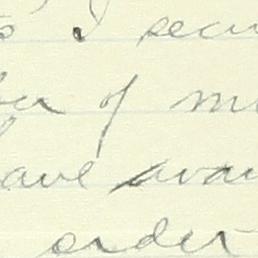 I secu
of m
ave avai
order